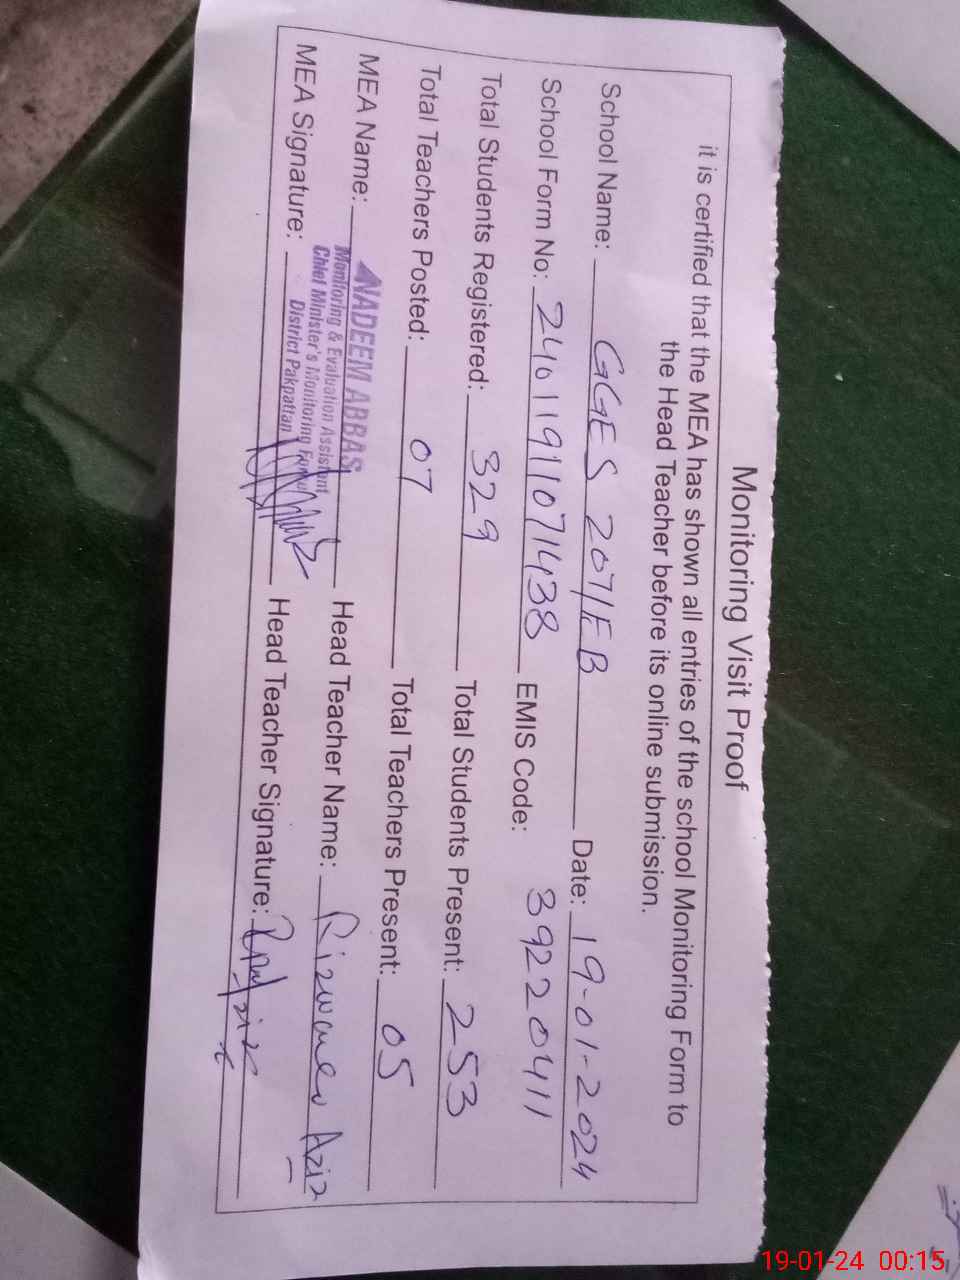 Monitoring Visit Proof
it is certified that the MEA has shown all entries of the school Monitoring Form to
the Head Teacher before its online submission.
School Name: GGES 207/EB Date: 19-01-2024
School Form No: 2401191071438 EMIS Code: 39220411
Total Students Registered: 329 Total Students Present: 253
Total Teachers Posted: 07 Total Teachers Present: 05
MEA Name: NADEEM ABBAS Head Teacher Name: Rizwana Aziz
Monitoring & Evaluation Assistant
Chief Minister's Monitoring Force
District Pakpattan
MEA Signature: Head Teacher Signature:
19-01-24 00:15